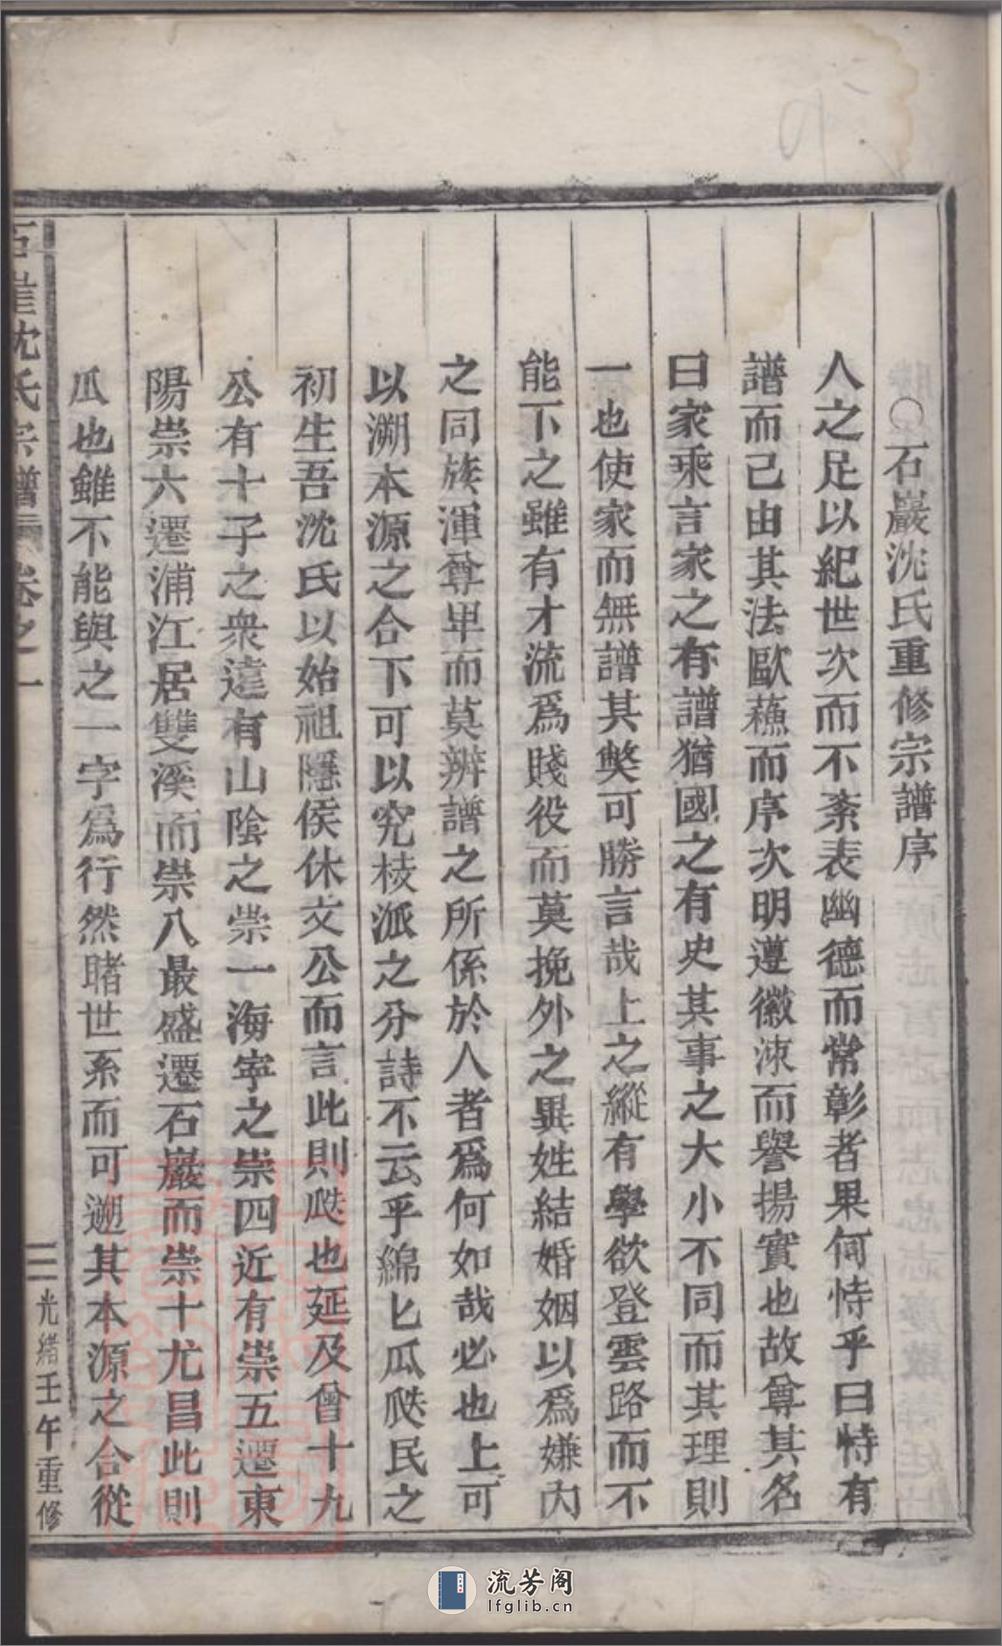 ○石巖沈氏重修宗譜序
人之足以紀世次而不紊表幽德而常彰者果何恃乎曰恃有
譜而己由其法歐蘓而序次明遵徽涑而譽揚實也故尊其名
曰家乘言家之有譜猶國之有史其事之大小不同而其理則
一也使家而無譜其獘可勝言哉上之縱有學欲登雲路而不
能下之雖有才流爲賤役而莫挽外之異姓結婚姻以爲嫌内
之同族渾尊卑而莫辨譜之所係於人者爲何如哉必也上可
以溯本源之合下可以究枝派之分詩不云乎綿匕瓜瓞民之
初生吾沈氏以始祖隱侯休文公而言此則瓞也延及曾十九
公有十子之衆遠有山陰之崇一海寜之崇四近有崇五遷東
陽崇六遷浦江居雙溪而崇八最盛遷石巖而崇十尤昌此則
瓜也雖不能與之一字爲行然睹世系而可遡其本源之合從
沈氏宗譜 卷之一
三 光緒壬午重修
流芳阁
lfglib.cn